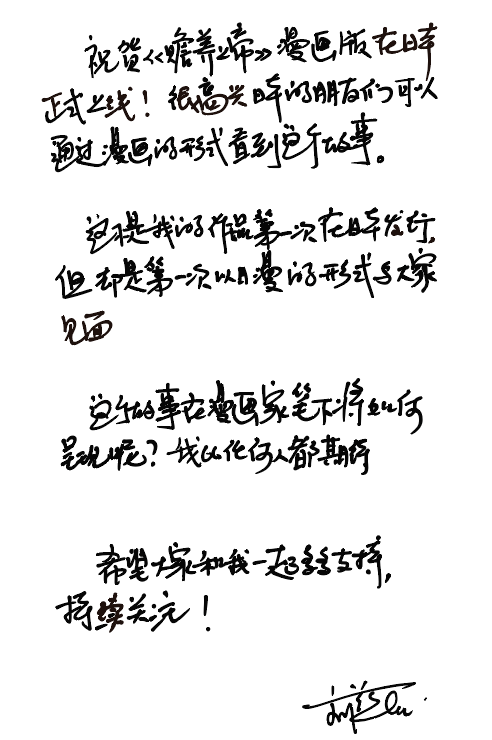 祝贺《赡养上帝》漫画版在日本
正式上线！很高兴日本的朋友们可以
通过漫画的形式看到这个故事。
这不是我的作品第一次在日本发行，
但却是第一次以日漫的形式与大家
见面
这个故事在漫画家笔下将如何
呈现呢？我比任何人都期待
希望大家和我一起多多支持，
持续关注！
刘慈欣